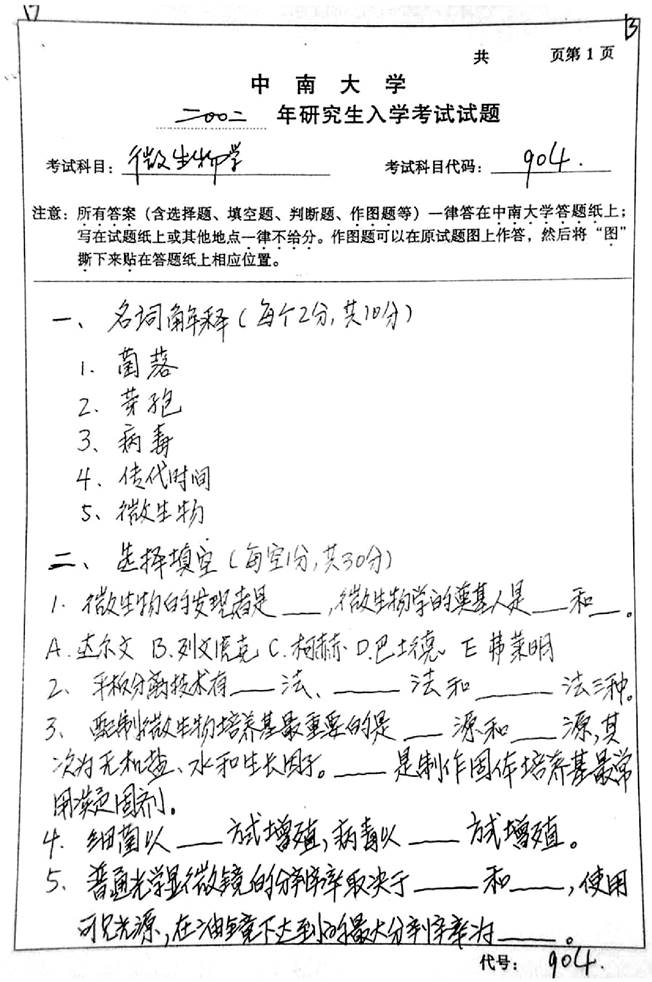 17
13
共 页第 1 页
中 南 大 学
二〇〇二 年研究生入学考试试题
考试科目: 微生物学 考试科目代码: 904.
注意: 所有答案（含选择题、填空题、判断题、作图题等）一律答在中南大学答题纸上;
写在试题纸上或其他地点一律不给分。作图题可以在原试题图上作答，然后将“图”
撕下来贴在答题纸上相应位置。
一、名词解释（每个2分,共10分）
1. 菌落
2. 芽孢
3、病毒
4、传代时间
5、微生物
二、选择填空（每空1分,共30分）
1. 微生物的发现者是___,微生物学的奠基人是___和__。
A.达尔文 B.列文虎克 C.柯赫 D.巴士德 E 弗莱明
2、平板分离技术有___法、____法和____法三种。
3、配制微生物培养基最重要的是___源和___源,其
次为无机盐、水和生长因子。___是制作固体培养基最常
用凝固剂。
4. 细菌以___方式增殖,病毒以___方式增殖。
5、普通光学显微镜的分辨率取决于____和____,使用
可见光源,在油镜下达到的最大分辨率为____。
代号: 904.